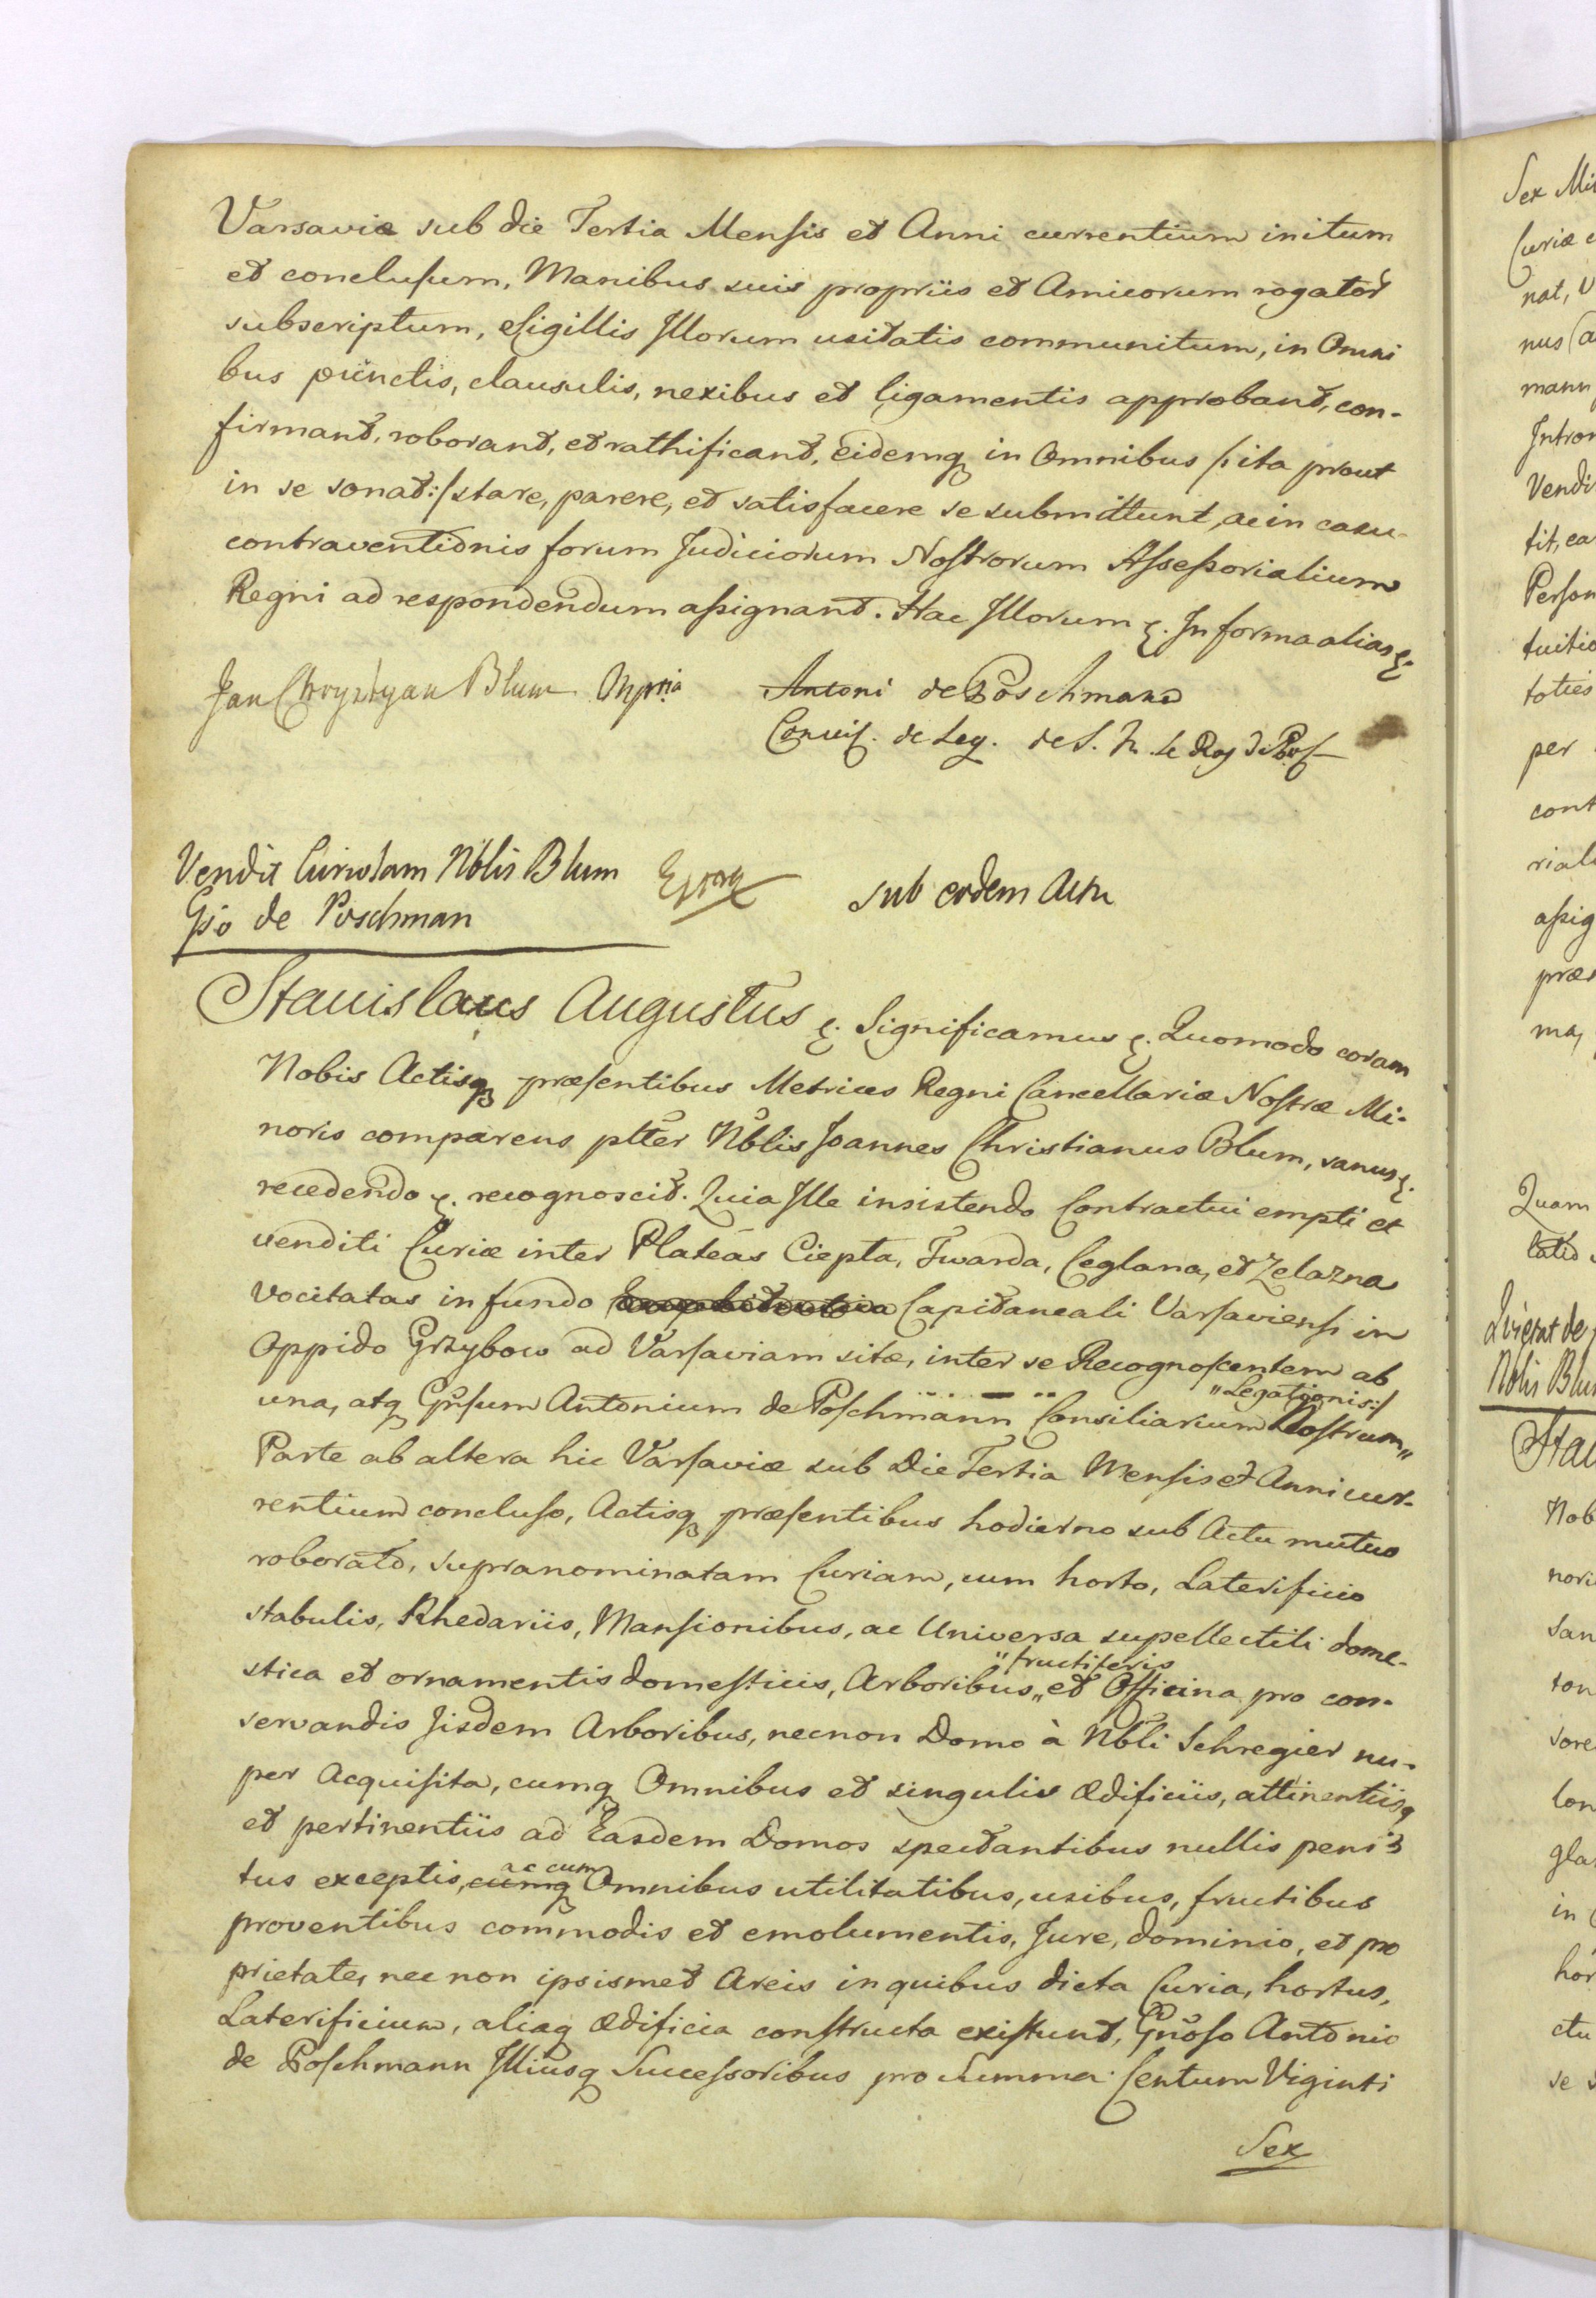 Varsaviæ sub die Tertia Mensis et Anni currentium initum
et conclusum, Manibus suis propriis et Amicorum rogator̃
subscriptum, Sigillis Illorum usitatis communitum, in Omni
bus punctis, clausulis, nexibus et ligamentis approbant, con-
firmant, roborant, et rathificant, eidemq in Omnibus /: ita prout
in se sonat :/ stare, parere, et satisfacere se submittunt, ac in casu
contraventionis forum Judiciorum Nostrorum Assessorialium
Regni ad respondendum assignant. Hac Illorum &. In forma alias &.
Jan Chrystyan Blum Mpria Antoni de Poschmann
Conseil. de Leg. de S. M. le Roy de Pol
Vendit Curiæ tam Nblis Blum
Gso de Poschman
sub eodem Actu
Stanislaus Augustus &. Significamus &. Quomodo coram
Nobis Actisq præsentibus Metrices Regni Cancellariæ Nostræ Mi-
noris comparens ptter Nblis Joannes Christianus Blum, sanus &.
recedendo &. recognoscit. Quia Ille insistendo Contractui empti et
venditi Curiæ inter Plateas Ciepła, Twarda, Ceglana, et Zelazna
vocitatas in fundo Capitaneali Varsaviensi in
Oppido Grzybow ad Varsaviam sitæ, inter se Recognoscentem ab
una, atq Gnsum Antonium de Poschmann Consiliarium „Legationis :/ Nostrum „
Parte ab altera hic Varsaviæ sub Die Tertia Mensis et Anni cur-
rentium concluso, Actisq præsentibus hodierno sub Actu mutuo
roborato, supranominatam Curiam, cum horto, Laterificio
stabulis, Rhedariis, Mansionibus, ac Universa supellectili dome-
stica et ornamentis domesticis, Arboribus „ fructiferis „ et Officina pro con-
servandis Iisdem Arboribus, necnon Domo à Nbli Schregier nu-
per Acquisita, cumq Omnibus et singulis ædificiis, attinentiisq
et pertinentiis ad Easdem Domos spectantibus nullis peni-
tus exceptis, cumq ac cum Omnibus utilitatibus, usibus, fructibus
proventibus commodis et emolumentis, Jure, dominio, et pro
prietate, nec non ipsismet Areis in quibus dicta Curia, hortus,
Laterificium, aliaq ædificia constructa existunt, Gnoso Antonio
de Poschmann Illiusq Successoribus pro Summa Centum Viginti
Sex
Sex
Curiæ
nat,
nus
mann
Intro
Vendi
tit, ea
Person
tuitio
toties
per
cont
rial
assig
præs
ma,
Quam
latio
Quietat de
Nblis Blu
Sta
Nob
nori
san
ton
sore
lon
gla
in
hor
ctu
se